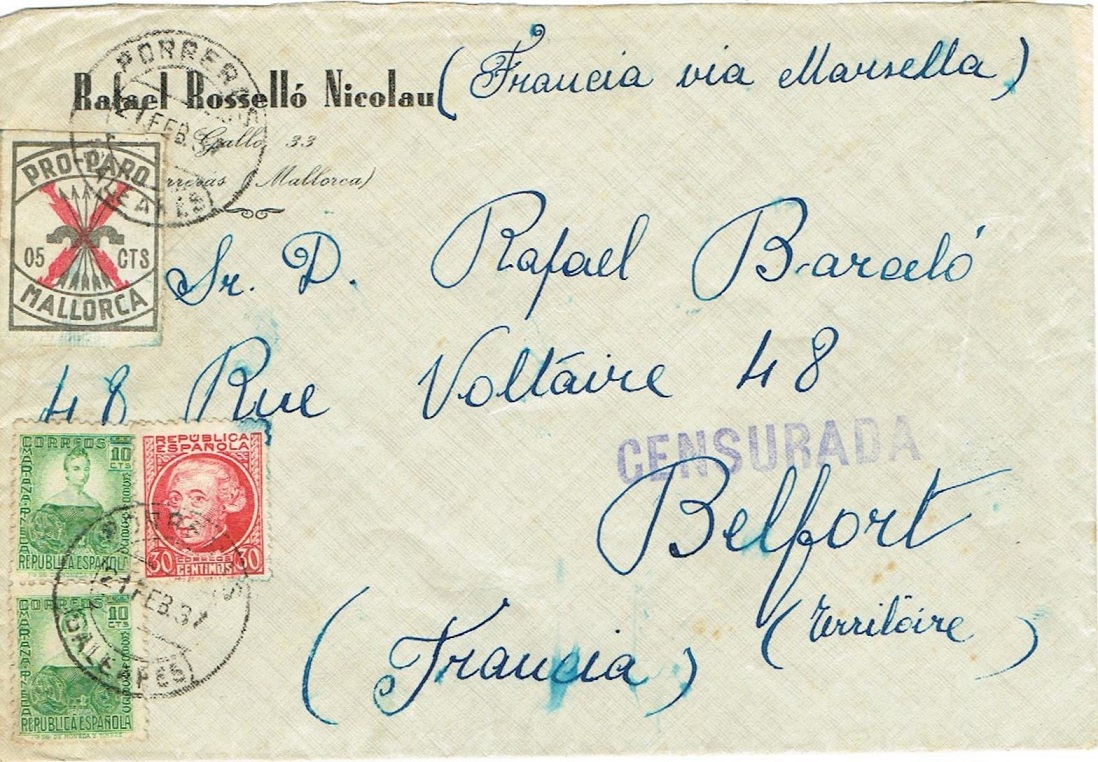 (Francia via Marsella)
Rafael Rosselló Nicolau
Gallo, 33
(Mallorca)
PORRERAS
21 FEB. 37
BALEARES
PRO-PARO
05 CTS
MALLORCA
Sr. D. Rafael Barceló
48 Rue Voltáire 48
CENSURADA
Belfort
(Territóire)
(Francia)
CORREOS
10 CTS
MARIANA PINEDA
REPUBLICA ESPAÑOLA
REPUBLICA ESPAÑOLA
30 CORREOS 30
CENTIMOS
PORRERAS
21 FEB. 37
BALEARES
CORREOS
10 CTS
MARIANA PINEDA
REPUBLICA ESPAÑOLA